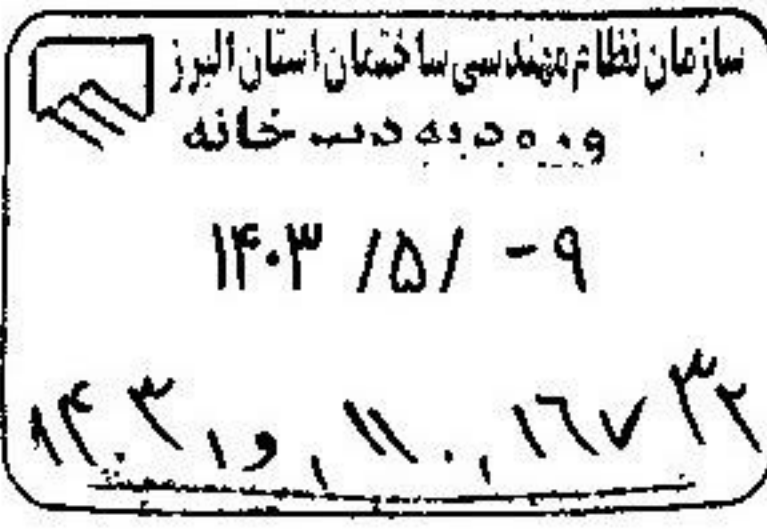 سازمان نظام مهندسی ساختمان استان البرز
ورود به دبیرخانه
۱۴۰۳ /۵/ -۹
۱۴۰۳،و،۱۱۰،۱۶۷۳۲